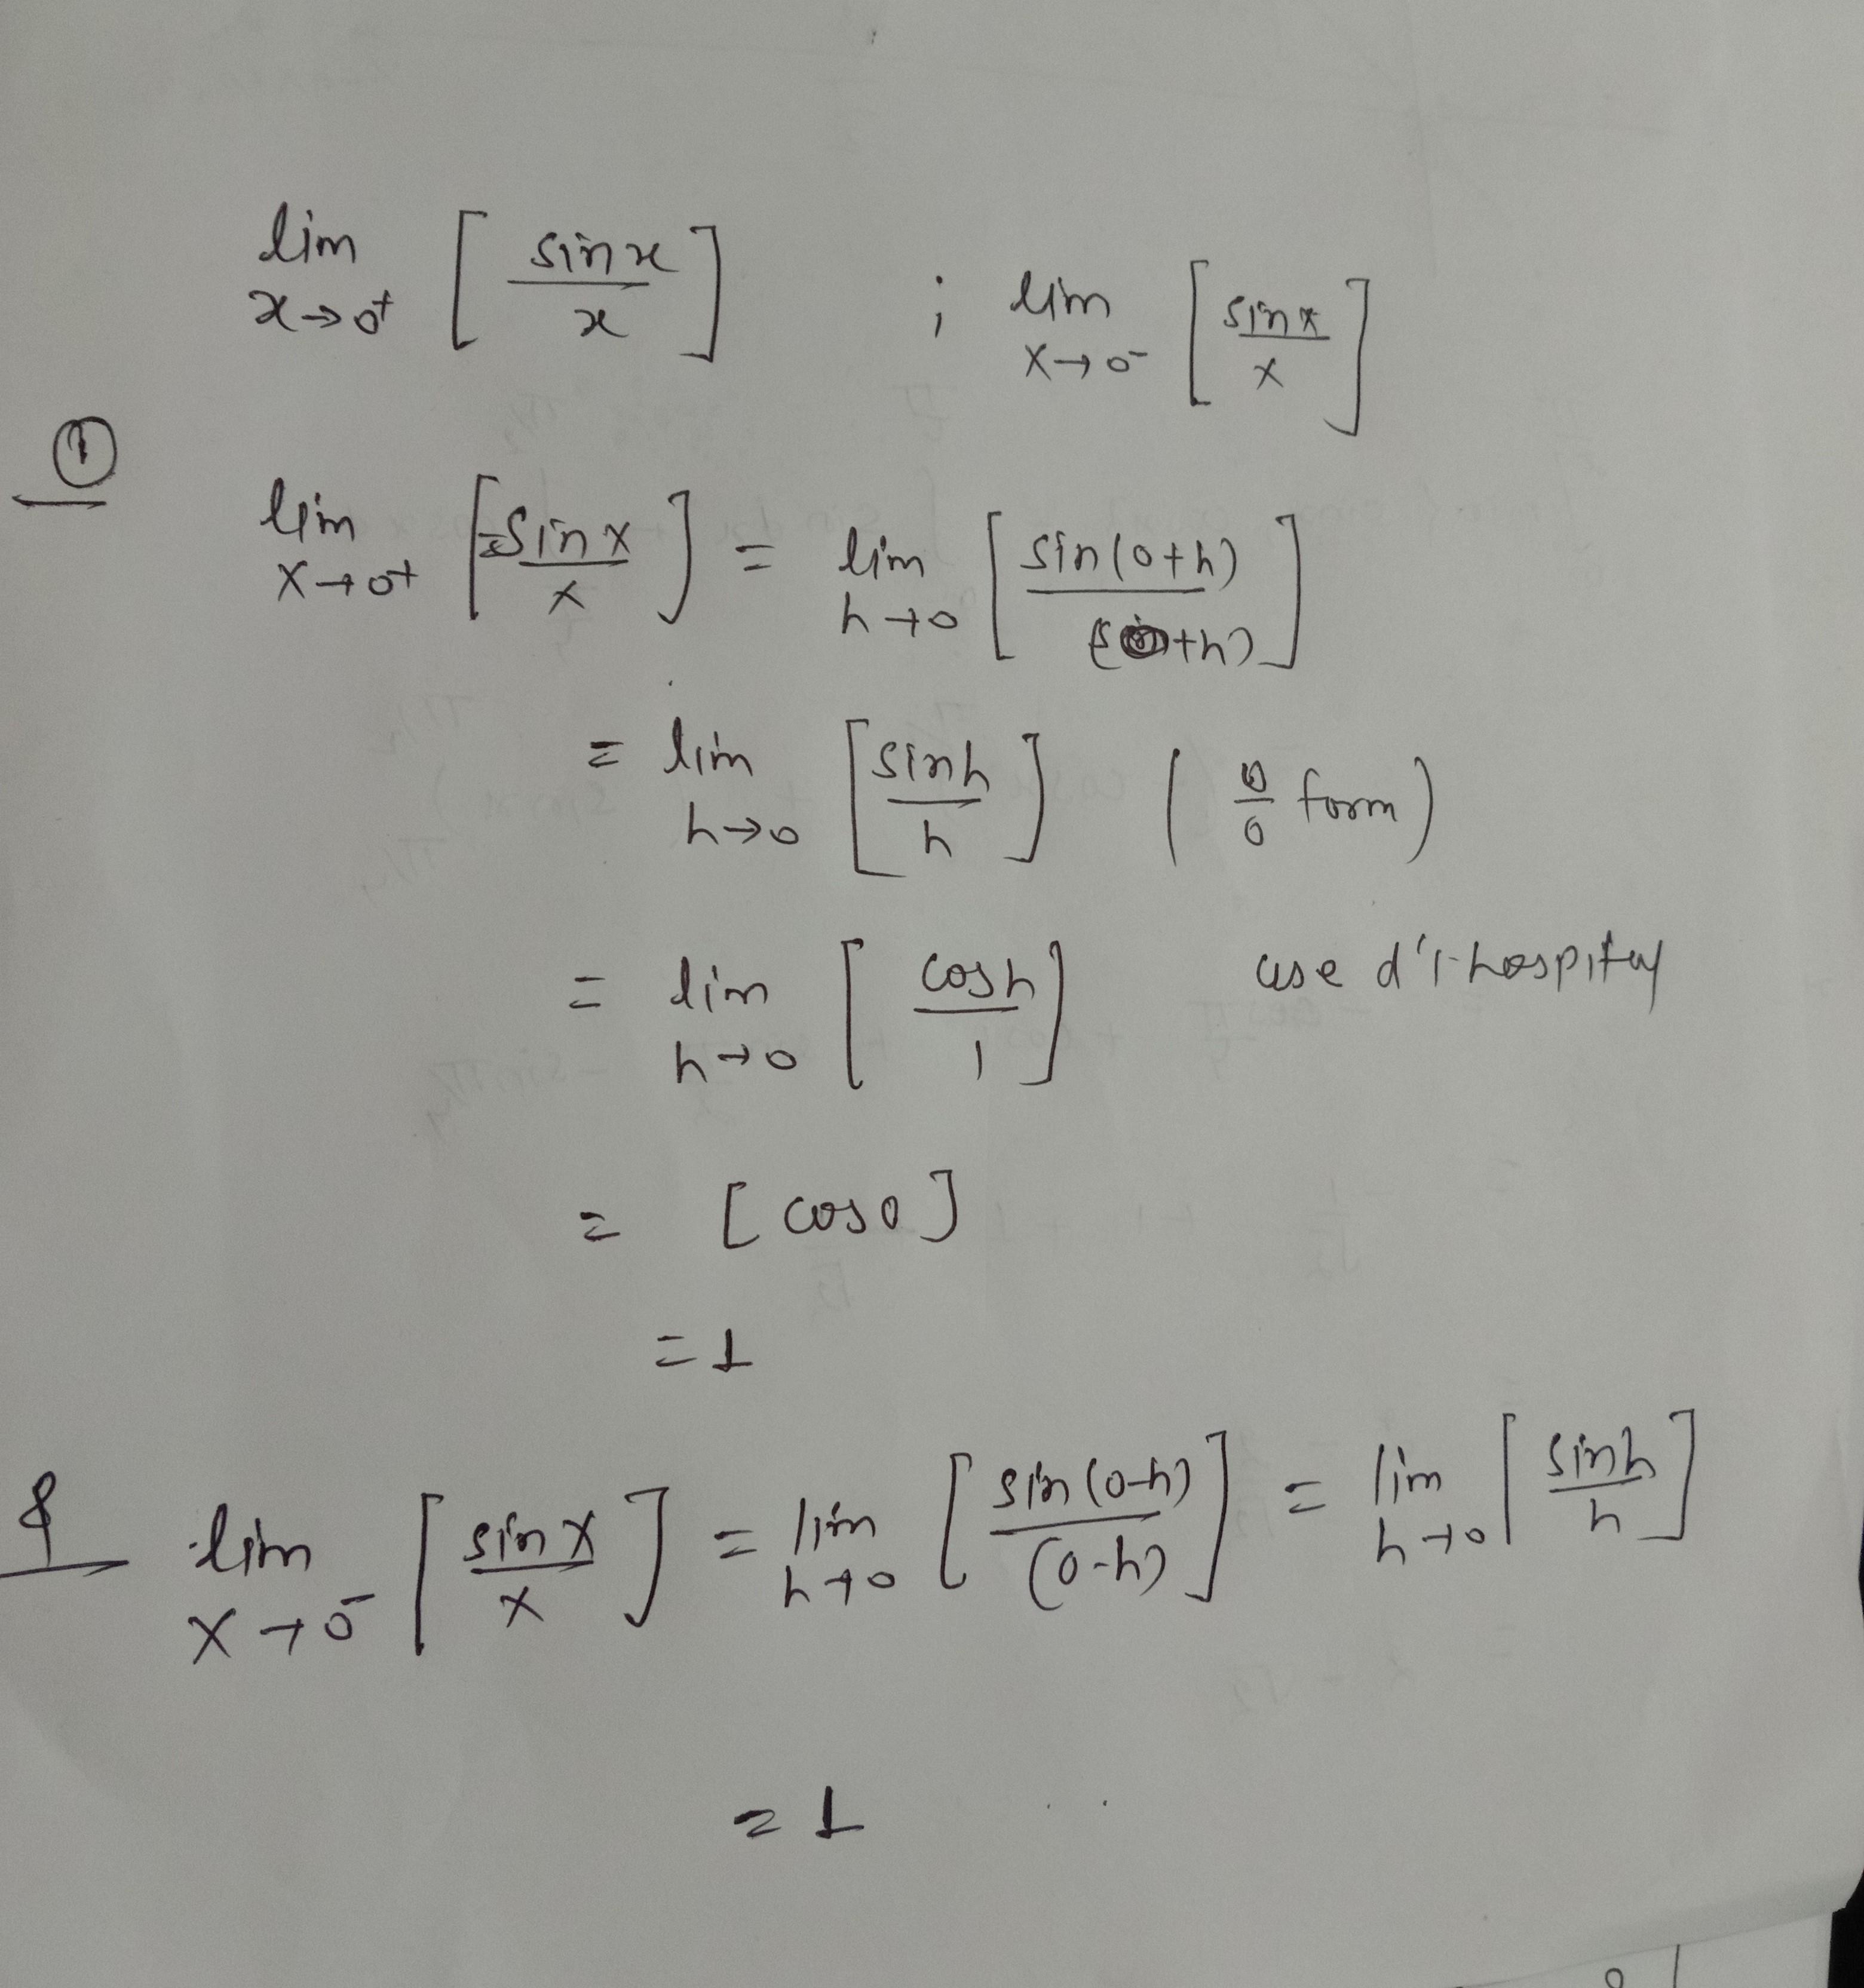 lim x→0⁺ [ sin x / x ] ; lim x→0⁻ [ sin x / x ]
①
lim x→0⁺ [ sin x / x ] = lim h→0 [ sin(0+h) / (0+h) ]
= lim h→0 [ sinh / h ] ( 0/0 form )
= lim h→0 [ cosh / 1 ] use d'l-hospital
= [ cos0 ]
= 1
& lim x→0⁻ [ sin x / x ] = lim h→0 [ sin(0-h) / (0-h) ] = lim h→0 [ sinh / h ]
= 1